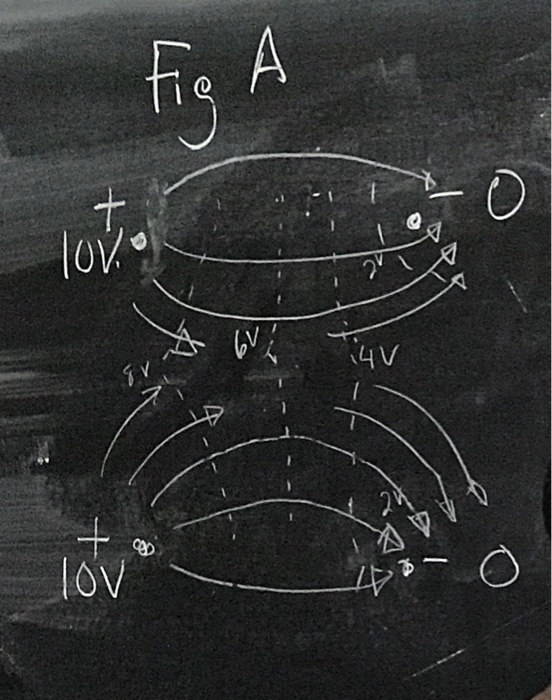 Fig A
+ - 0
10V.
2V
6V 4V
8V
2V
+ - 0
10V